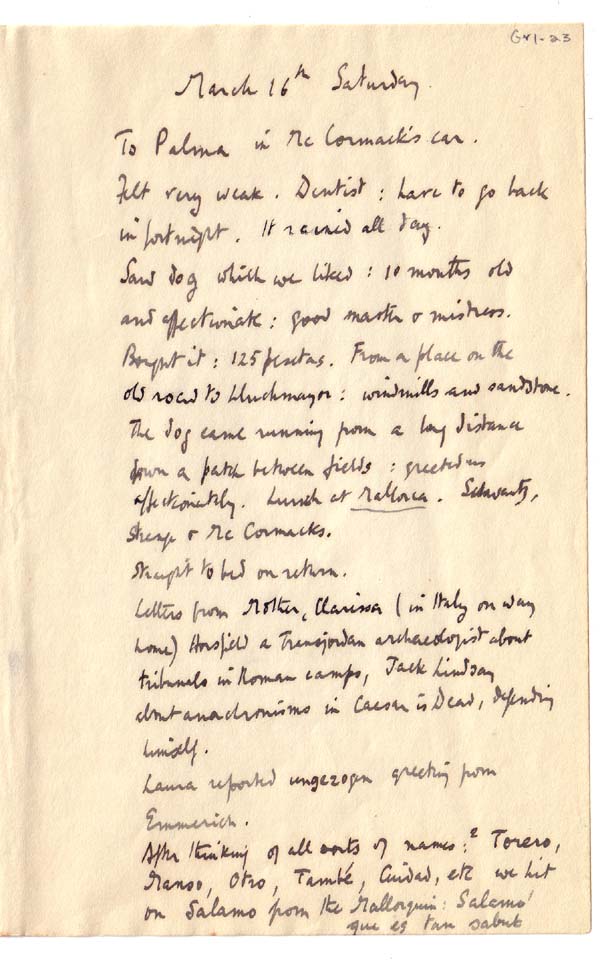 Gv1-23
March 16th Saturday.
To Palma in Mc Cormack's car.
Felt very weak. Dentist: have to go back
in fortnight. It rained all day.
Saw dog which we liked: 10 months old
and affectionate: good master & mistress.
Bought it: 125 pesetas. From a place on the
old road to Lluchmayor: windmills and sandstone.
The dog came running from a long distance
down a path between fields: greeted us
affectionately. Lunch at Mallorca. Schwartz,
Strenge & Mc Cormacks.
Straight to bed on return.
Letters from Mother, Clarissa (in Italy on way
home) Horsfield a Transjordan archaeologist about
tribunals in Roman camps, Jack Lindsay
about anachronisms in Caesar is Dead, defending
himself.
Laura reported ungezogen greeting from
Emmerich.
After thinking of all sorts of names: Torero,
Manso, Otro, També, Cuidad, etc we hit
on Salamo from the Mallorquin: Salamó
que es tan sabut